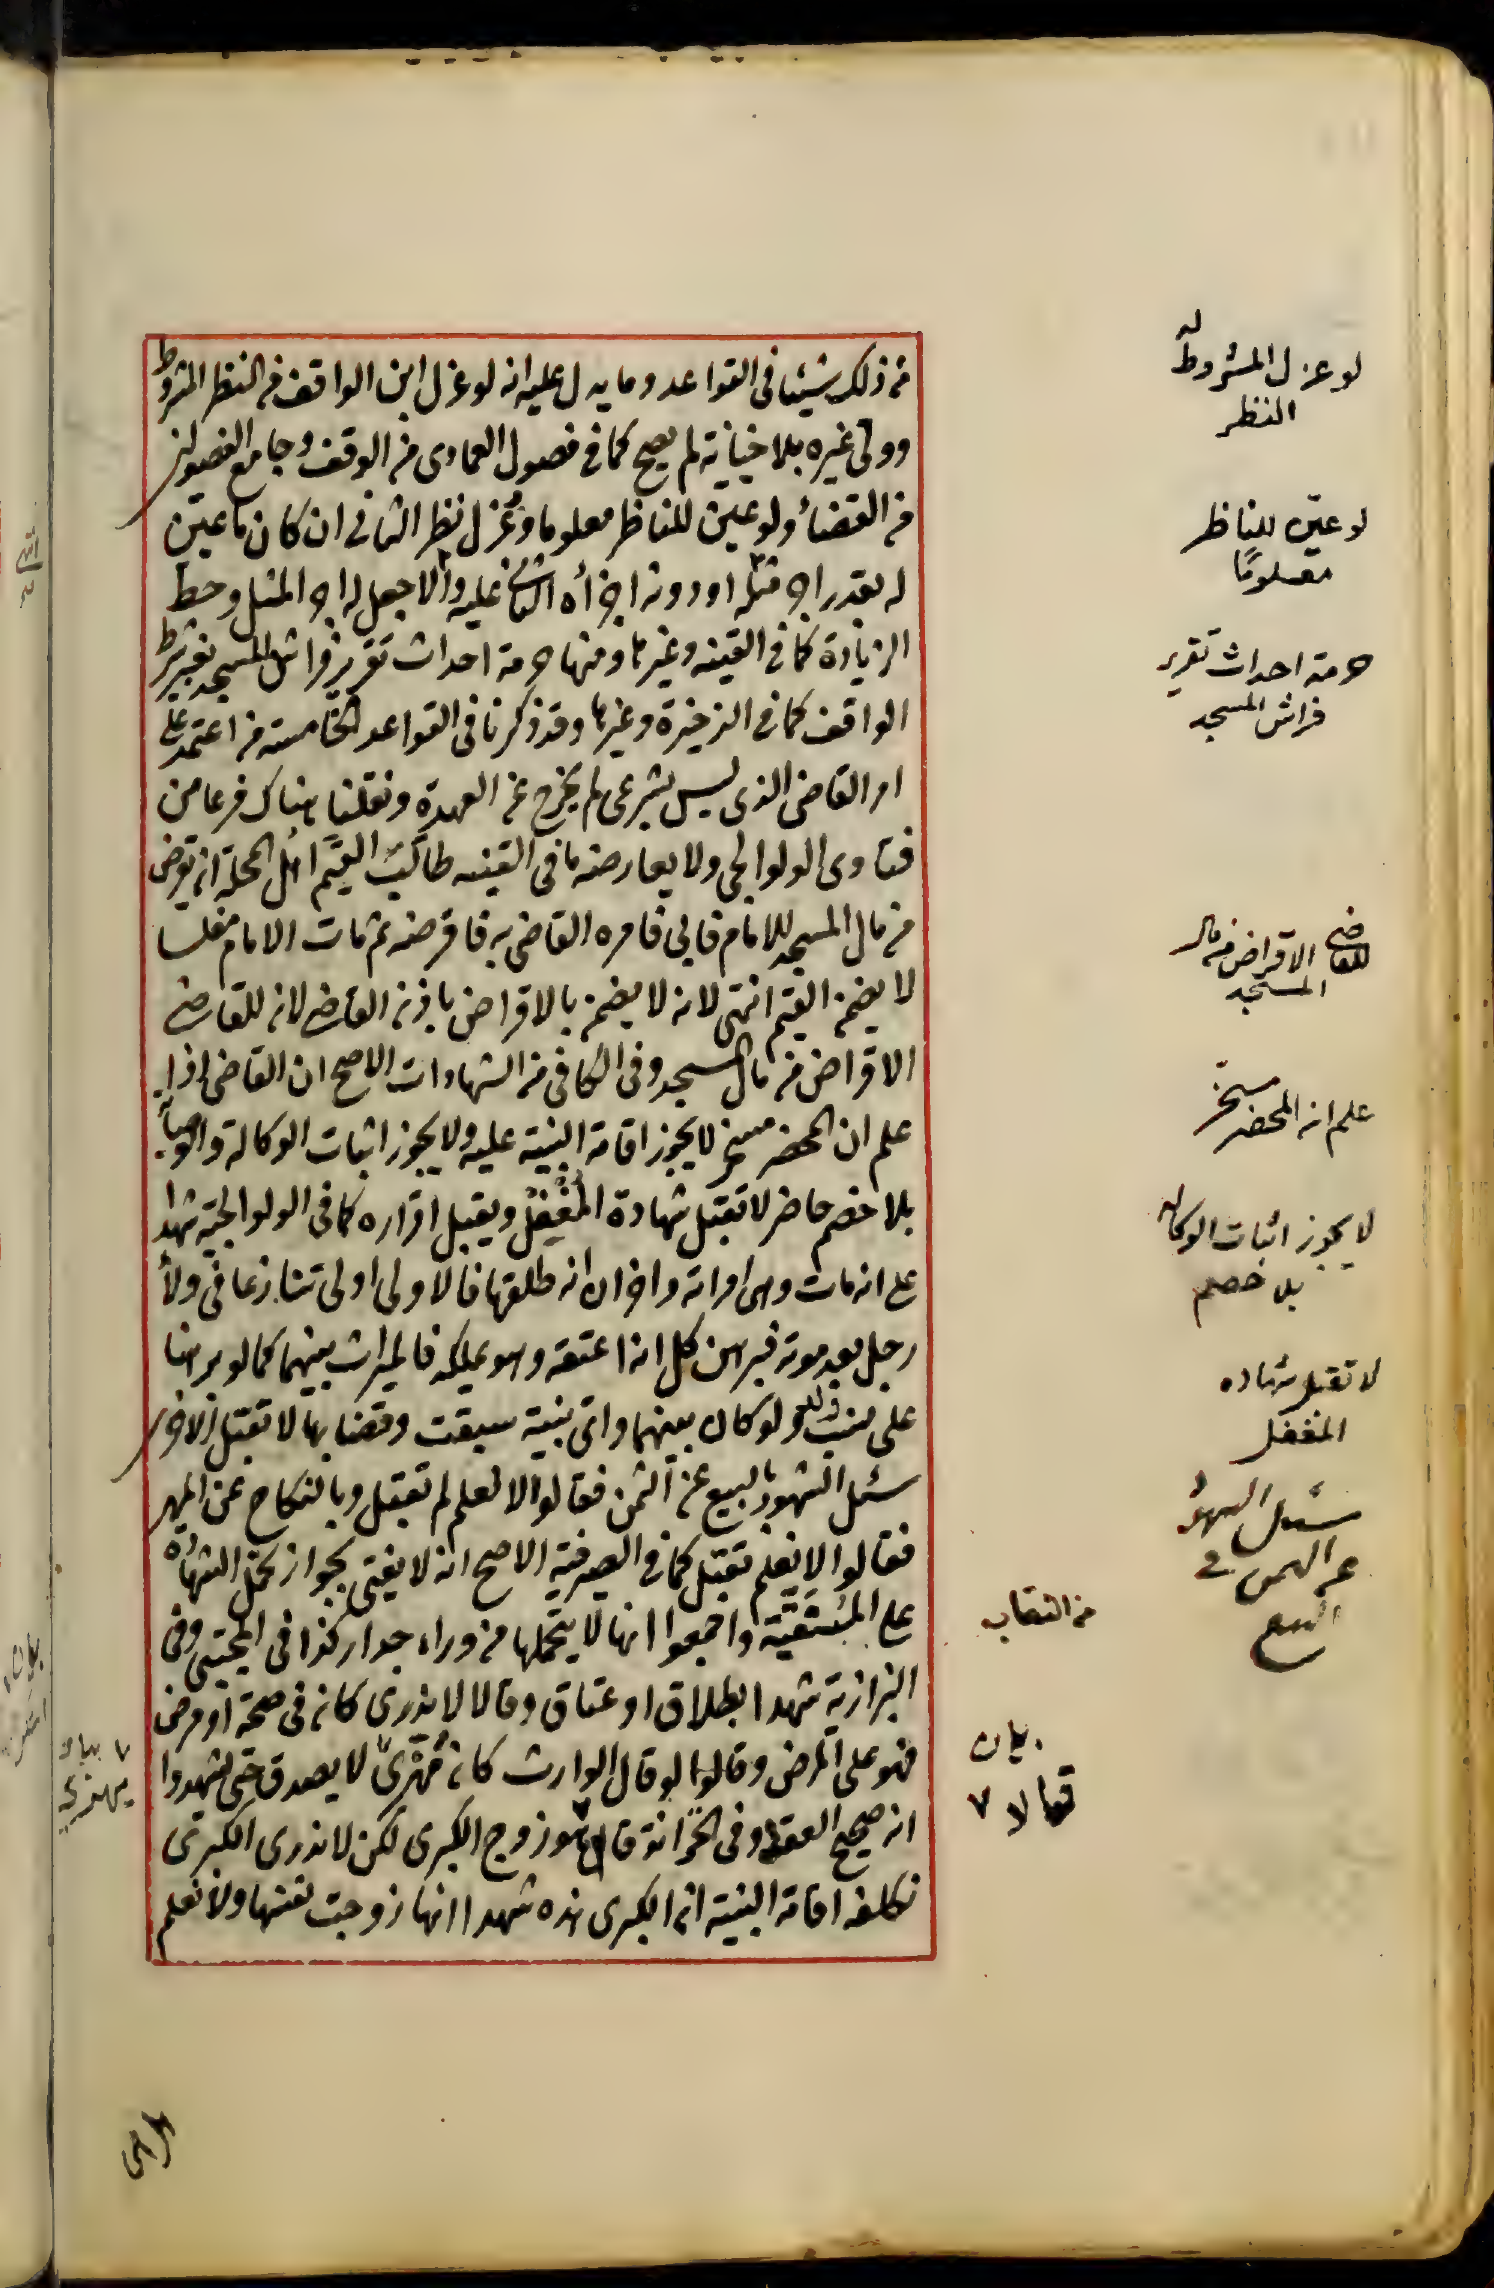 من ذلك شيئا فى القواعد ومما يدل عليه انه لو عزل ابن الواقف من النظر المشروط
وولى غيره بلا خيانة لم يصح كما فى فصول العمادى من الوقف وجامع الفصولين
من القضاء ولو عين للناظر معلوما وعزل نظر الثانى ان كان ما عين
له بقدر اجر مثله او دونه اجراه الثانى عليه والا جعل له اجر المثل وحط
الزيادة كما فى القنيه وغيرها ومنها حرمة احداث تقرير فراش للمسجد بغير شرط
الواقف كما فى الذخيرة وغيرها وقد ذكرنا فى القواعد الخامسة من اعتمد على
امر القاضى الذى ليس بشرعى لم يخرج عن العهدة ونقلنا هناك فرعا من
فتاوى الولوالجى ولا يعارضه ما فى القنيه طالب القيم اهل المحلة ان يقرض
من مال المسجد للامام فابى فامره القاضى به فاقرضه ثم مات الامام مفلسا
لا يضمن القيم انتهى لانه لا يضمن بالاقراض باذن القاضى لانه للقاضى
الاقراض من مال المسجد وفى الكافى من الشهادات الاصح ان القاضى اذا
علم ان المحضر مسخر لا يجوز اقامة البينة عليه ولا يجوز اثبات الوكالة والوصاية
بلا خصم حاضر لا تقبل شهادة المغفل ويقبل اقراره كما فى الولوالجية شهدا
على انه مات وهى امراته واخران انه طلقها فالاولى اولى تنازعا فى ولاء
رجل بعد موته فبرهن كل انه اعتقه وهو يملكه فالميراث بينهما كما لو برهنا
على نسب ولد كان بينهما واى بينة سبقت وقضا بها لا تقبل الاخرى
سئل الشهود بالبيع عن الثمن فقالوا لا نعلم لم تقبل وبالنكاح عن المهر
فقالوا لا نعلم تقبل كما فى الصيرفية الاصح انه لا يفتى بجواز تحمل الشهادة
على المتنقبة واجمعوا انها لا يتحملها من وراء جدار كذا فى المجتبى وفى
البزازية شهدا بطلاق او عتاق وقالا لا ندرى كان فى صحة او مرض
فهو على المرض وقالوا لو قال الوارث كان يهذى لا يصدق حتى يشهدوا
انه صحيح العقل وفى الخزانة قالا هو زوج الكبرى لكن لا ندرى الكبرى
نكلفه اقامة البينة ان الكبرى هذه شهدا انها زوجت نفسها ولا نعلم
لو عزل المشروط له
النظر
لو عين للناظر
معلوما
حرمة احداث تقرير
فراش المسجد
للقاضى الاقراض من مال
المسجد
علم ان المحضر مسخر
لا يجوز اثبات الوكاله
بلا خصم
لا تقبل شهاده
المغفل
سئل الشهود
عن الثمن فى
البيع
من النقاب
بيان
قالا ٧
٧ بيان
يهذى